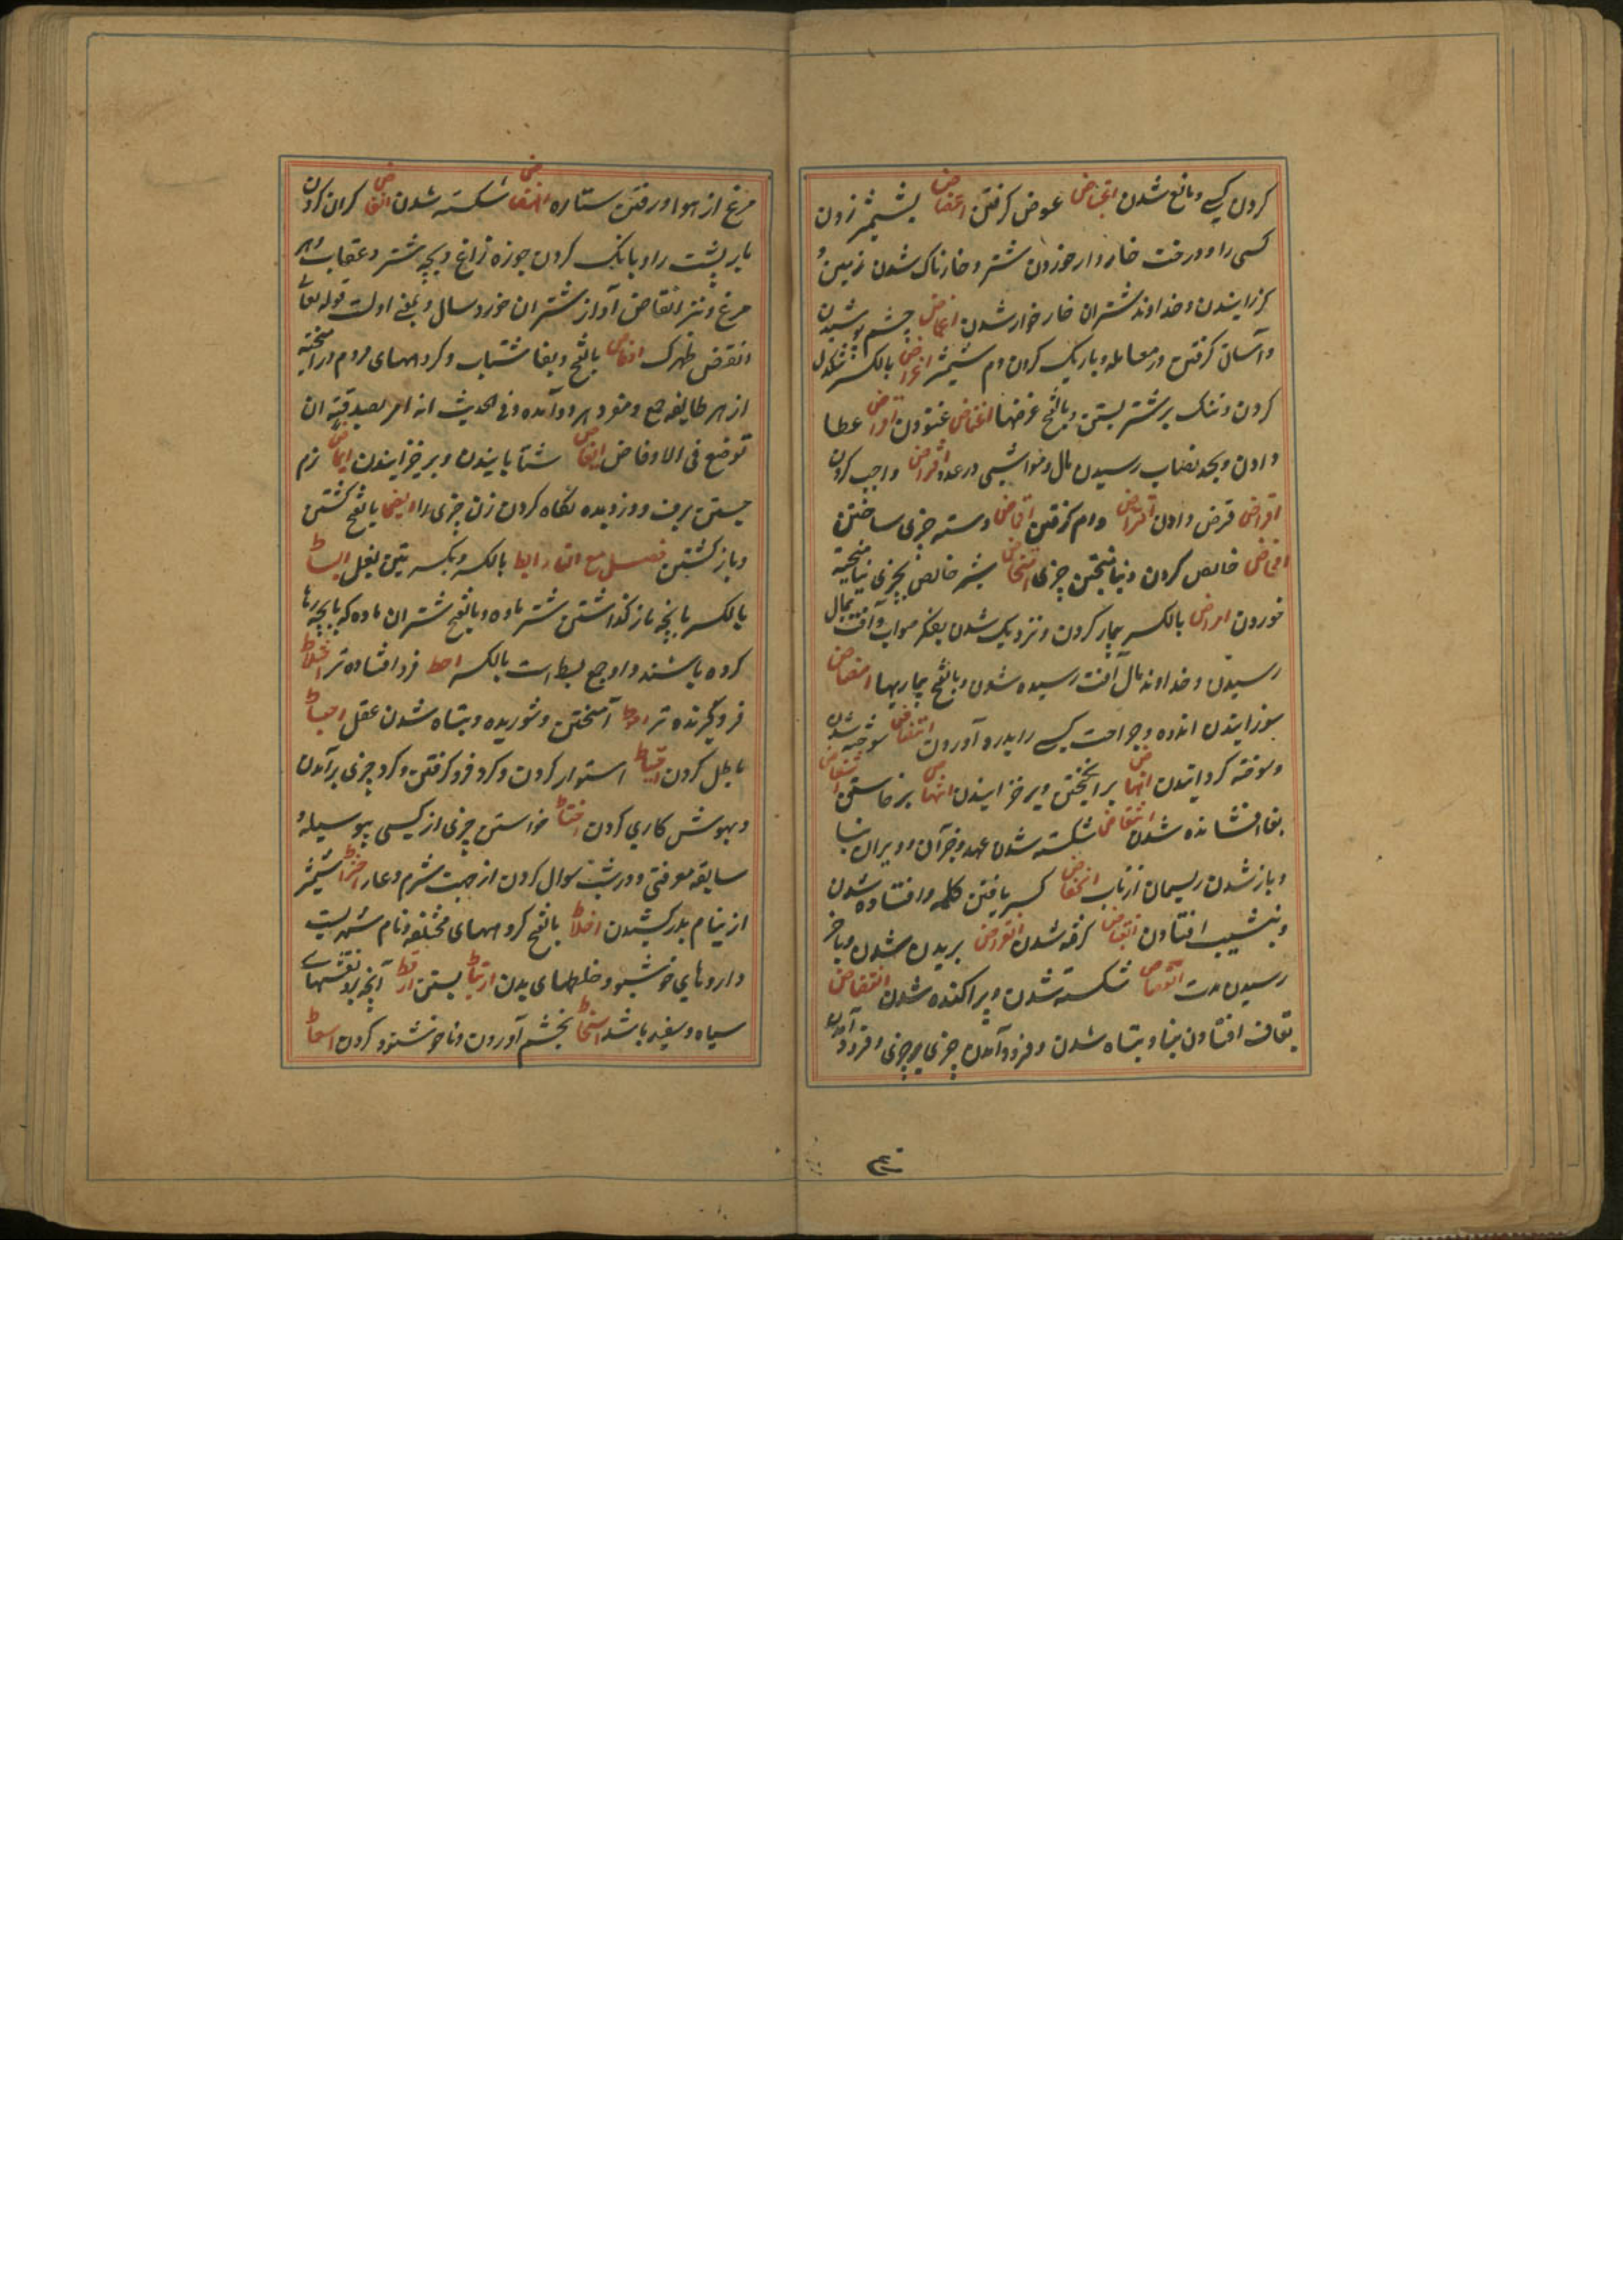 کردن کسی و مانع شدن اعتراض عوض کرفتن اعضاض بشمشیر زدن
کسی را و درخت خاردار خوردن شتر و خارناک شدن زمین و
کزانیدن و خداوند شتران خار خوار شدن اغماض چشم پوشیدن
و آسان کرفتن در معامله و باریک کردن دم شمشیر اغراض بالکسر تنکدل
کردن و تنک بر شتر بستن و بالفتح غرضها اغتماض غنودن افراض عطا
دادن و بحد نصاب رسیدن مال و مواشی در عدد افتراض واجب کردن
اقراض قرض دادن اقتراض وام کرفتن اقباض دسته چیزی ساختن
امحاض خالص کردن و نیامیختن چیزی امتحاض شیر خالص بچیزی نیامیخته
خوردن امراض بالکسر بیمار کردن و نزدیک شدن بفکر صواب و آفت بمال
رسیدن و خداوند مال آفت رسیده شدن و بالفتح بیماریها امضاض
سوزانیدن اندوه و جراحت کسی را بدرد آوردن انتفاض سوخته شدن
و سوخته کردانیدن انهاض برانکیختن و برخیزانیدن انتهاض برخاستن انتفاض
بفا افشانده شدن انتقاض شکسته شدن عهد و جز آن و ویران بنا
و باز شدن ریسمان از تاب انخفاض کسر یافتن کلمه و افتاده شدن
و بنشیب افتادن انقباض کرفته شدن انقراض بریدن شدن و باخر
رسیدن مدت انفضاض شکسته شدن و پراکنده شدن انقضاض
بقاف افتادن بنا و بتباه شدن و فرود آمدن چیزی بر چیزی و فرود آمدن
مرغ از هوا و رفتن ستاره انهضاض شکسته شدن انقاض کران کردن
بار پشت را و بانک کردن جوزه زاغ و بچه شتر و عقاب و هر
مرغ و نیز انقاض آواز شتران خورد سال و بمعنی اولت قوله تعالی
انقض ظهرک اوفاض بالفتح و بفا شتاب و کروههای مردم درآمیخته
از هر طایفه جمع و مفرد هر دو آمده و فی الحدیث انه امر بصدقته ان
توضع فی الاوفاض ایفاض شتابانیدن و برخیزانیدن ایماض نرم
جستن برق و دزدیده نکاه کردن زن چیزی را ایضا بالفتح کشتن
و باز کشتن فصل مع الطا ابط بالکسر و بکسرتین بغل ابساط
بالکسر با بچه باز کذاشتن شتر ماده و بالفتح شتران ماده که با بچه رها
کرده باشند و او جمع بسط است بالکسر احط فرو افتاده تر اختلاط
فروکیرنده تر آمیختن و شوریده و بتباه شدن عقل احباط
باطل کردن احتیاط استوار کردن و کرد فرو کرفتن و کرد چیزی برآمدن
و بهوش کاری کردن اختباط خواستن چیزی از کسی بیوسیله و
سابقه معرفتی و در شب سوال کردن از جهت شرم و عار اختراط شمشیر
از نیام بدر کشیدن اخلاط بالفتح کروههای مختلفه و نام شهریست
داروهای خوشبو و خلطهای بدن ارتباط بستن ارقط آنچه برو نقشهای
سیاه و سفید باشد اسخاط بخشم آوردن و ناخوشنود کردن اسعاط